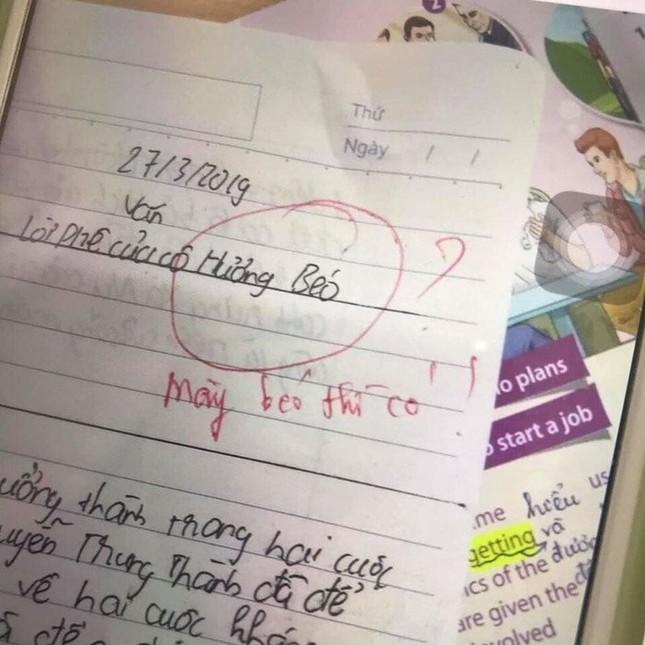 2
Thứ
Ngày / /
27/3/2019
Văn
Lời phê của cô Hưởng Béo
?
Mày béo thì có ! !
o plans
start a job
me hiểu us
getting và
ics of the được
are given the
volved
ưởng thành trong hai cuộc
uyễn Trung Thành đã để
về hai cuộc kháng